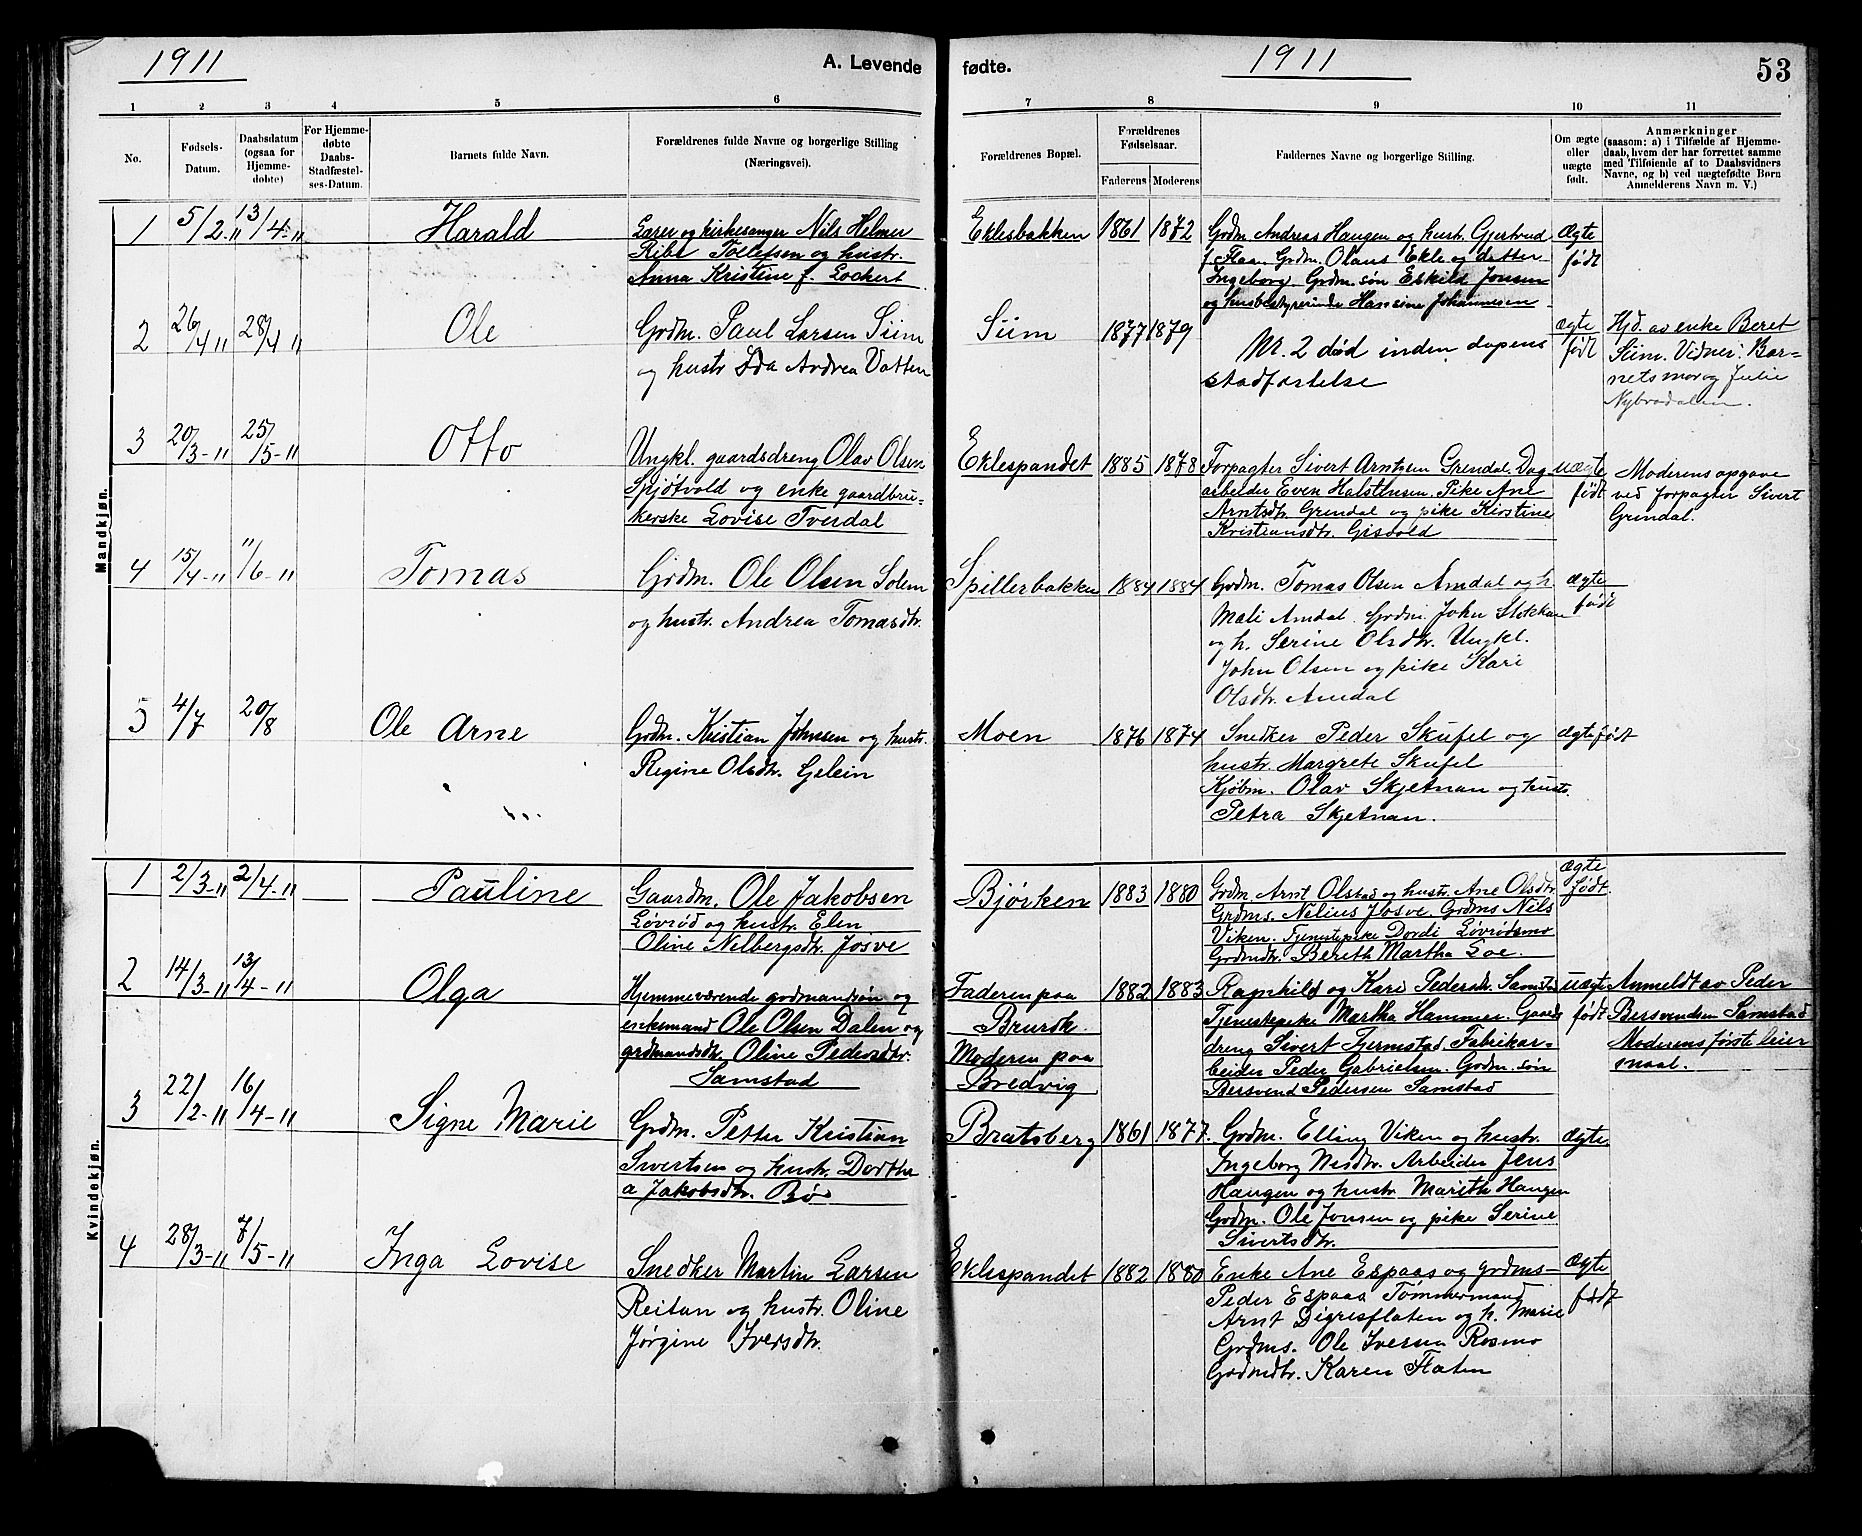 1911
A. Levende
fødte.
1911
53
1 2 3 4 5 6 7 8 9 10 11
No.
Fødsels-
Datum.
Daabsdatum
(ogsaa for
Hjemme-
døbte)
For Hjemme-
døbte
Daabs-
Stadfæstel-
ses-Datum.
Barnets fulde Navn.
Forældrenes fulde Navne og borgerlige Stilling
(Næringsvei).
Forældrenes Bopæl.
Forældrenes
Fødselsaar.
Faderens Moderens
Faddernes Navne og borgerlige Stilling.
Om ægte
eller
uægte
født.
Anmærkninger
(saasom: a) i Tilfælde af Hjemme-
daab, hvem der har forrettet samme
med Tilføiende af to Daabsvidners
Navne, og b) ved uægtefødte Børn
Anmelderens Navn m. V.)
Mandkjøn.
1 5/2-11 13/4-11 Harald
Lærer og kirkesanger Nils Helmer
Ribe Tollefsen og hustr.
Anna Kristine f. Lockert
Eklesbakken 1861 1872
Grdm. Andreas Haugen og hustr. Gjertrud
f. Flaa. Grdm. Olaus Ekle og datter
Ingeborg. Grdm. søn Eskild Jonsen
og husbestyrerinde Hansine Johannesen
Ægte
født
2 26/4 11 28/4 11 Ole
Grdm. Paul Larsen Siim
og hustr Ida Andrea Vatten
Siim 1877 1879
Nr. 2 død inden dapens
stadfæstelse
ægte
født
Hjd. av enke Beret
Siim. Vidner: Bar-
nets mor og Julie
Nybrodalen.
3 20/3-11 25/5-11 Otto
Ungkl. gaardsdreng Olav Olsen
Spjøtvold og enke gaardbru-
kerske Lovise Tverdal
Eklespandet 1885 1878
Forpagter Sivert Arntsen Grendal. Dag
arbeider Even Halstensen. Pike Ane
Arntsdtr. Grendal og pike Kirstine
Kristiansdtr. Gisvold
uægte
født
Moderens opgave
ved forpagter Sivert
Grendal.
4 15/4-11 11/6-11 Tomas
Grdm. Ole Olsen Solem
og hustr. Andrea Tomasdtr.
Spillerbakken 1884 1884
Grdm. Tomas Olsen Amdal og h.
Mali Amdal. Grdm. John Stokkan
og h. Serine Olsdtr. Ungkl.
John Olsen og pike Kari
Olsdtr. Amdal
ægte
født
5 4/7 20/8 Ole Arne
Grdm. Kristian Johnsen og hustr.
Regine Olsdtr. Gelein
Moen 1876 1874
Snedker Peder Skufel og
hustr. Margrete Skufel
Kjøbm. Olav Skjetnan og hustr.
Petra Skjetnan.
ægte født
Kvindekjøn.
1 2/3-11 2/4-11 Pauline
Gaardm. Ole Jakobsen
Løvrød og hustr. Elen
Oline Nelbergsdtr. Jøsve
Bjørken 1883 1880
Grdm. Arnt Olstad og hustr. Ane Olsdtr.
Grdms. Nelius Jøsve. Grdms Nils
Viken. Tjenestepike Dordi Løvrødsmo
Grdmdtr. Bereth Martha Loe.
Ægte
født.
2 14/3-11 13/4-11 Olga
Hjemmeværende grdmandsøn og
enkemand Ole Olsen Dalen og
grdmandsdtr. Oline Pedersdtr.
Samstad
Faderen paa
Brurdk.
Moderen paa
Bredvig
1882 1883
Ragnhild og Kari Pedersdtr. Samstad
Tjenestepike Martha Hammer. Gaards
dreng Sivert Fjermstad. Fabrikar-
beider Peder Gabrielsen. Grdm. søn
Bersvend Pedersen Samstad
uægte
født
Anmeldt av Peder
Bersvendsen Samstad
Moderens første leier
maal.
3 22/2-11 16/4-11 Signe Marie
Grdm. Petter Kristian
Sivertsen og hustr. Dorthe
a Jakobsdtr. Bø
Bratsberg 1861 1877
Grdm. Elling Viken og hustr.
Ingeborg Nisdtr. Arbeider Jens
Haugen og hustr. Marith Haugen
Grdm. Ole Jonsen og pike Serine
Sivertsdtr.
Ægte
4 28/3-11 7/5-11 Inga Lovise
Snedker Martin Larsen
Reitan og hustr. Oline
Jørgine Iversdtr.
Eklespandet 1882 1880
Enke Ane Espaas og grdms-
Peder Espaas Tømmermand
Arnt Digresflaten og h. Marie
Grdms. Ole Iversen Rosmo
Grdmdtr. Karen Flaten
Ægte
født